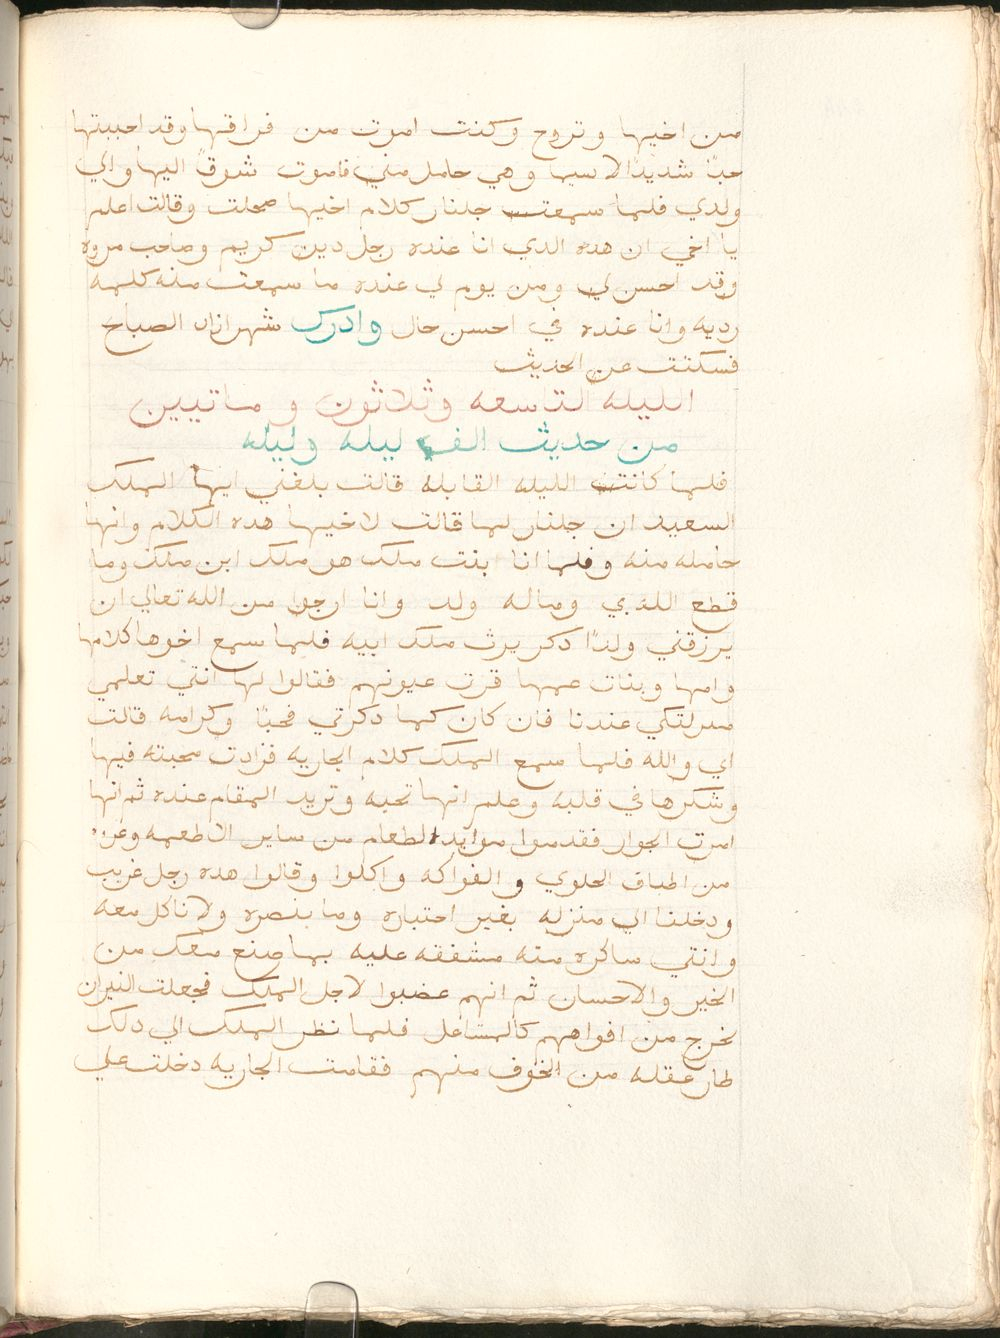 من اخيها وتروح وكنت اموت من فراقها وقد احببتها
حبًا شديدًا لاسيما وهي حامل مني فاموت شوقًا اليها والي
ولدي فلما سمعت جلنار كلام اخيها ضحكت وقالت اعلم
يا اخي ان هده الدي انا عنده رجل دين كريم وصاحب مروه
وقد احسن لي ومن يوم لي عنده ما سمعت منه كلمه
رديه وانا عنده في احسن حال وادرك شهرازاد الصباح
فسكتت عن الحديث
الليله التاسعه وثلاثون وماتيين
من حديث الف ليله وليله
فلما كانت الليله القابله قالت بلغني ايها الملك
السعيد ان جلنار لما قالت لاخيها هده الكلام وانها
حامله منه وفلما انا ابنت ملك هو ملك ابن ملك وما
قطع اللدي وماله ولد وانا ارجوا من الله تعالي ان
يرزقني ولدًا دكر يرث ملك ابيه فلما سمع اخوها كلامها
وامها وبنات عمها قرت عيونهم فقالوا لها انتي تعلمي
منزلتكي عندنا فان كان كما دكرتي فحبًا وكرامه قالت
اي والله فلما سمع الملك كلام الجاريه فزادت محبته فيها
وشكرها في قلبه وعلم انها تحبه وتريد المقام عنده ثم انها
امرت الجوار فقدموا موايد الطعام من ساير الاطعمه وغره
من اطباق الحلوي و الفواكه واكلوا وقالوا هده رجل غريب
ودخلنا الي منزله بغير اختياره وما بنصره ولا ناكل معه
وانتي شاكره منه مشفقه عليه بما صنع معك من
الخير والاحسان ثم انهم غضبوا لاجل الملك فجعلت النيران
تخرج من افواههم كالمشاعل فلما نظر الملك الي دلك
طار عقله من الخوف منهم فقامت الجاريه دخلت علي